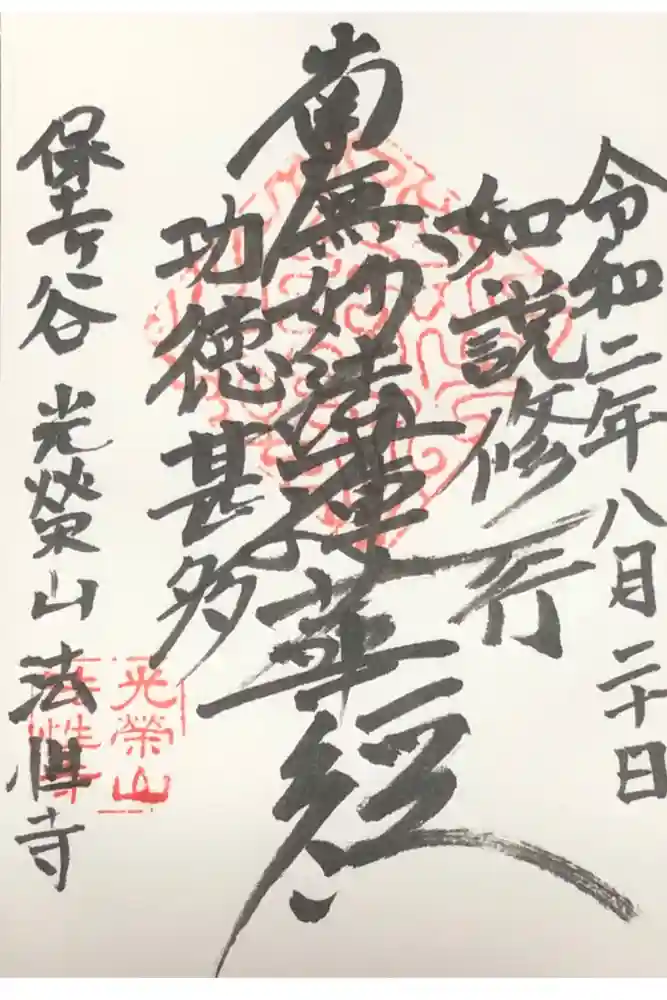 令和二年八月二十日
如説修行
南無妙法蓮華経
功徳甚多
保土ヶ谷 光榮山 法性寺
光榮山
法性寺